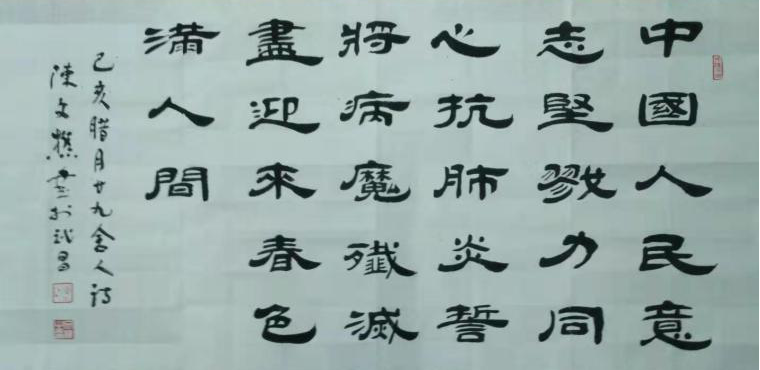 中國人民意
志堅戮力同
心抗肺炎誓
將病魔殲滅
盡迎來春色
滿人間
己亥腊月廿九舍人詩
陳文樵書於武昌